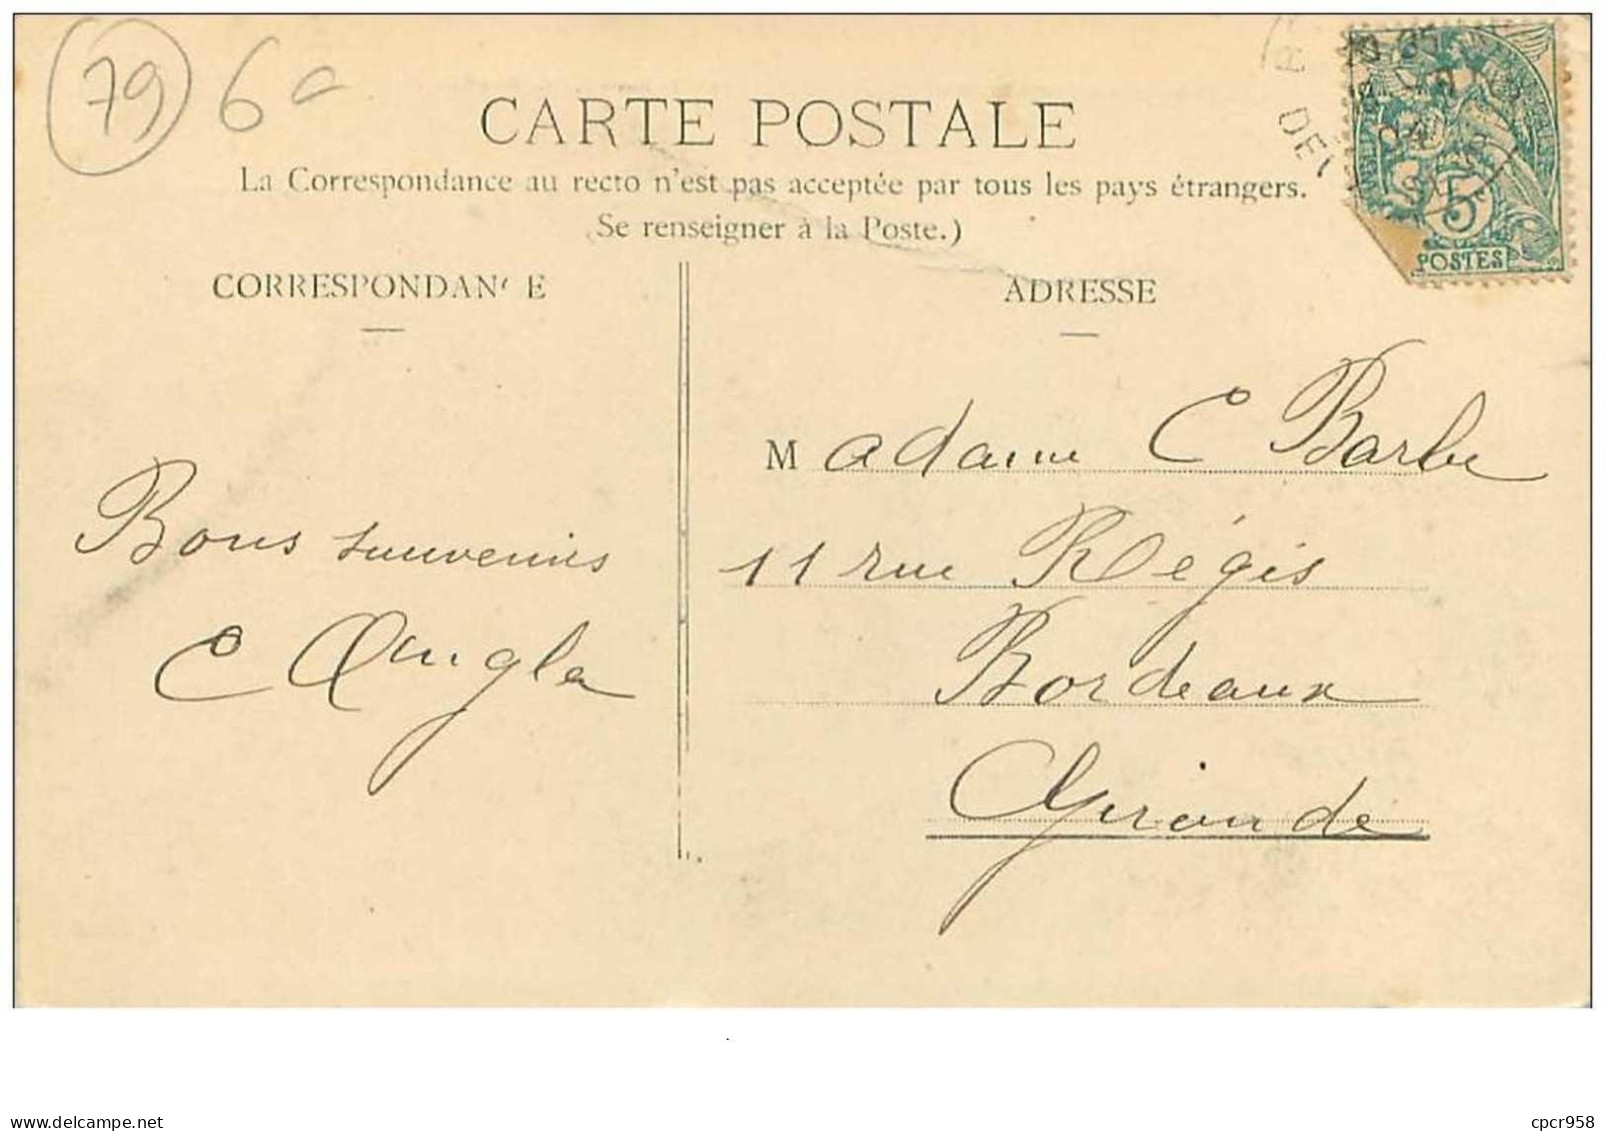 79 6
CARTE POSTALE
La Correspondance au recto n'est pas acceptée par tous les pays étrangers.
(Se renseigner à la Poste.)
CORRESPONDANCE
ADRESSE
5
POSTES
DEUX
Bons souvenirs
C Angla
Madame C Barbe
11 rue Régis
Bordeaux
Gironde
www.delcampe.net
cpcr958